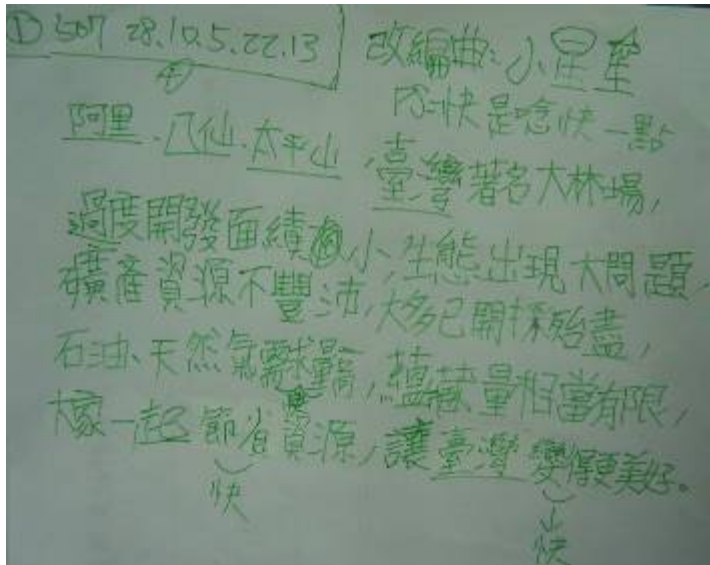 ① 507 28.10.5.22.13
④
改編曲:小星星
PS:快是唸快一點
阿里、八仙、太平山,臺灣著名大林場,
過度開發面積縮小,生態出現大問題,
礦產資源不豐沛,大多已開採殆盡,
石油、天然氣需求量高,蘊藏量相當有限,
快
大家一起節省資源,讓臺灣變得更美好。
快
快